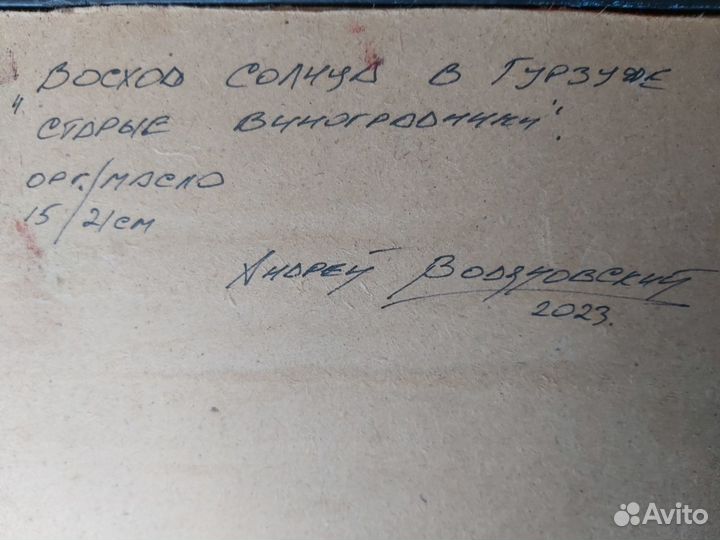 "ВОСХОД СОЛНЦА В ГУРЗУФЕ
СТАРЫЕ ВИНОГРАДНИКИ".
ОРГ./МАСЛО
15/21см
АНДРЕЙ ВОДЯНОВСКИЙ
2023.
Avito